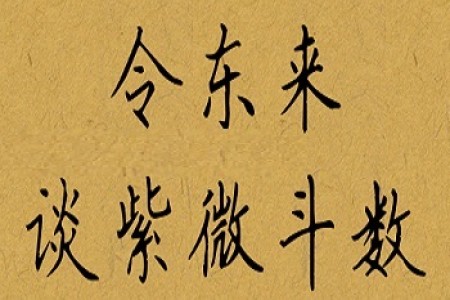 令东来
谈紫微斗数